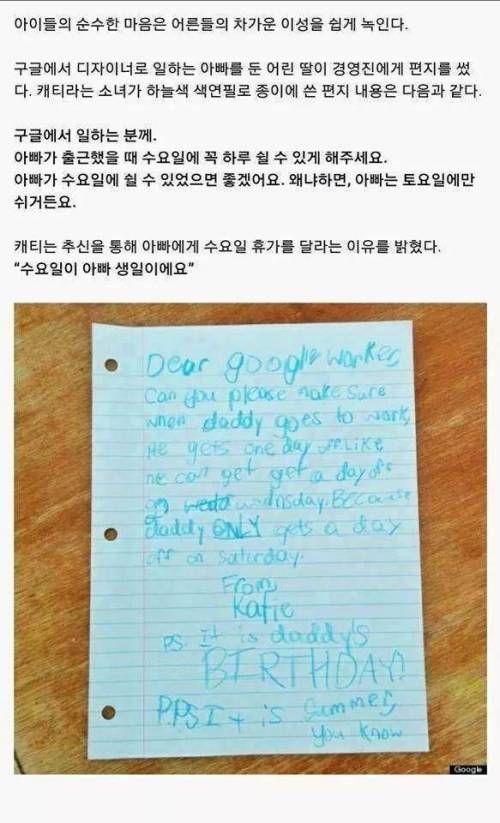 아이들의 순수한 마음은 어른들의 차가운 이성을 쉽게 녹인다.
구글에서 디자이너로 일하는 아빠를 둔 어린 딸이 경영진에게 편지를 썼
다. 캐티라는 소녀가 하늘색 색연필로 종이에 쓴 편지 내용은 다음과 같다.
구글에서 일하는 분께.
아빠가 출근했을 때 수요일에 꼭 하루 쉴 수 있게 해주세요.
아빠가 수요일에 쉴 수 있었으면 좋겠어요. 왜냐하면, 아빠는 토요일에만
쉬거든요.
캐티는 추신을 통해 아빠에게 수요일 휴가를 달라는 이유를 밝혔다.
“수요일이 아빠 생일이에요”
Dear google worker
Can you please make sure
when daddy goes to work
He gets one day off. Like
he can get get a day off
on wednsday. Because
daddy ONLY gets a day
off on saturday.
From
Katie
P.S. It is daddy's
BIRTHDAY!
P.P.S It is summer,
you know
Google